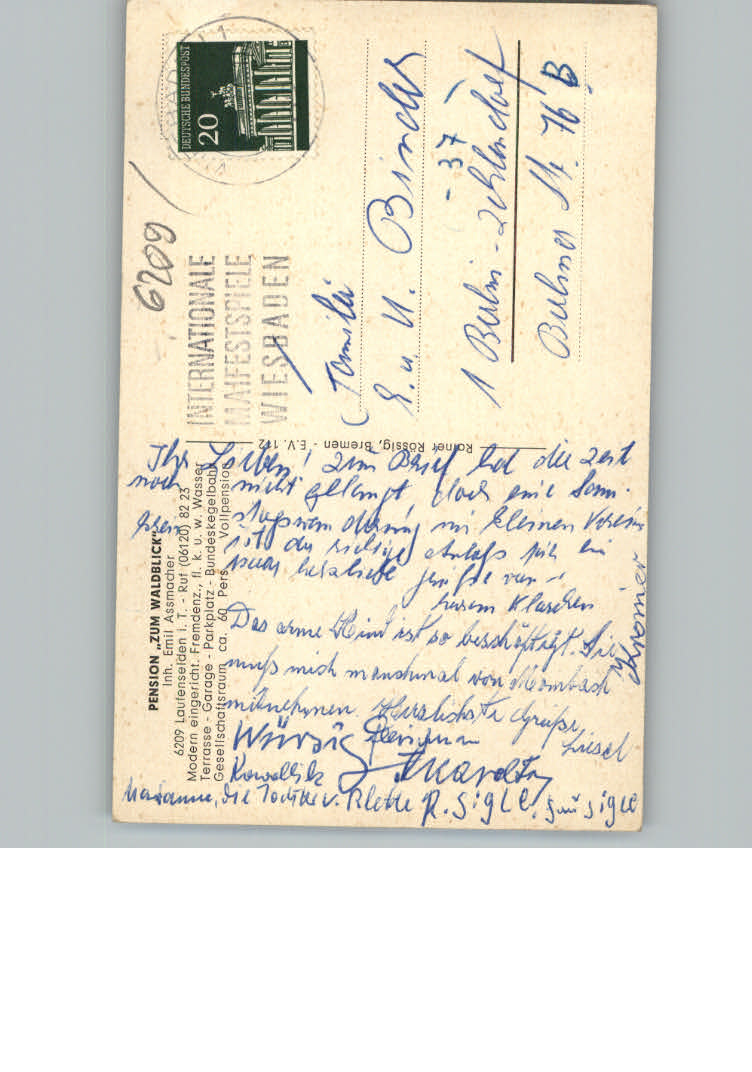 DEUTSCHE BUNDESPOST
20
6209
INTERNATIONALE
MAIFESTSPIELE
WIESBADEN
Familie
E. u. U. Binder
- 37 -
1 Berlin - Zehlendorf
Berliner Str. 76 B
Rainer Rössig, Bremen - E.V. 112
PENSION „ZUM WALDBLICK"
Inh. Emil Assmacher
6209 Laufenselden i. T. - Ruf (06120) 82 23
Modern eingericht. Fremdenz., fl. k. u. w. Wasser
Terrasse - Garage - Parkplatz - Bundeskegelbahn
Gesellschaftsraum ca. 60 Pers. Vollpension
Ihr Lieben! Zum Brief hat die Zeit
noch nicht gelangt doch eine Sonn-
im kleinen Verein
ist der richtige Anlaß für ein
paar herzliche Grüße von
Klärchen
Das arme Kind ist so beschäftigt. Sie
muß mich manchmal von Mombach
mitnehmen. Herzlichste Grüße
Liesel
Krömer
Würzig
Fleischman
Kowallik
Marianne, die Tochter v.
R. Sigle